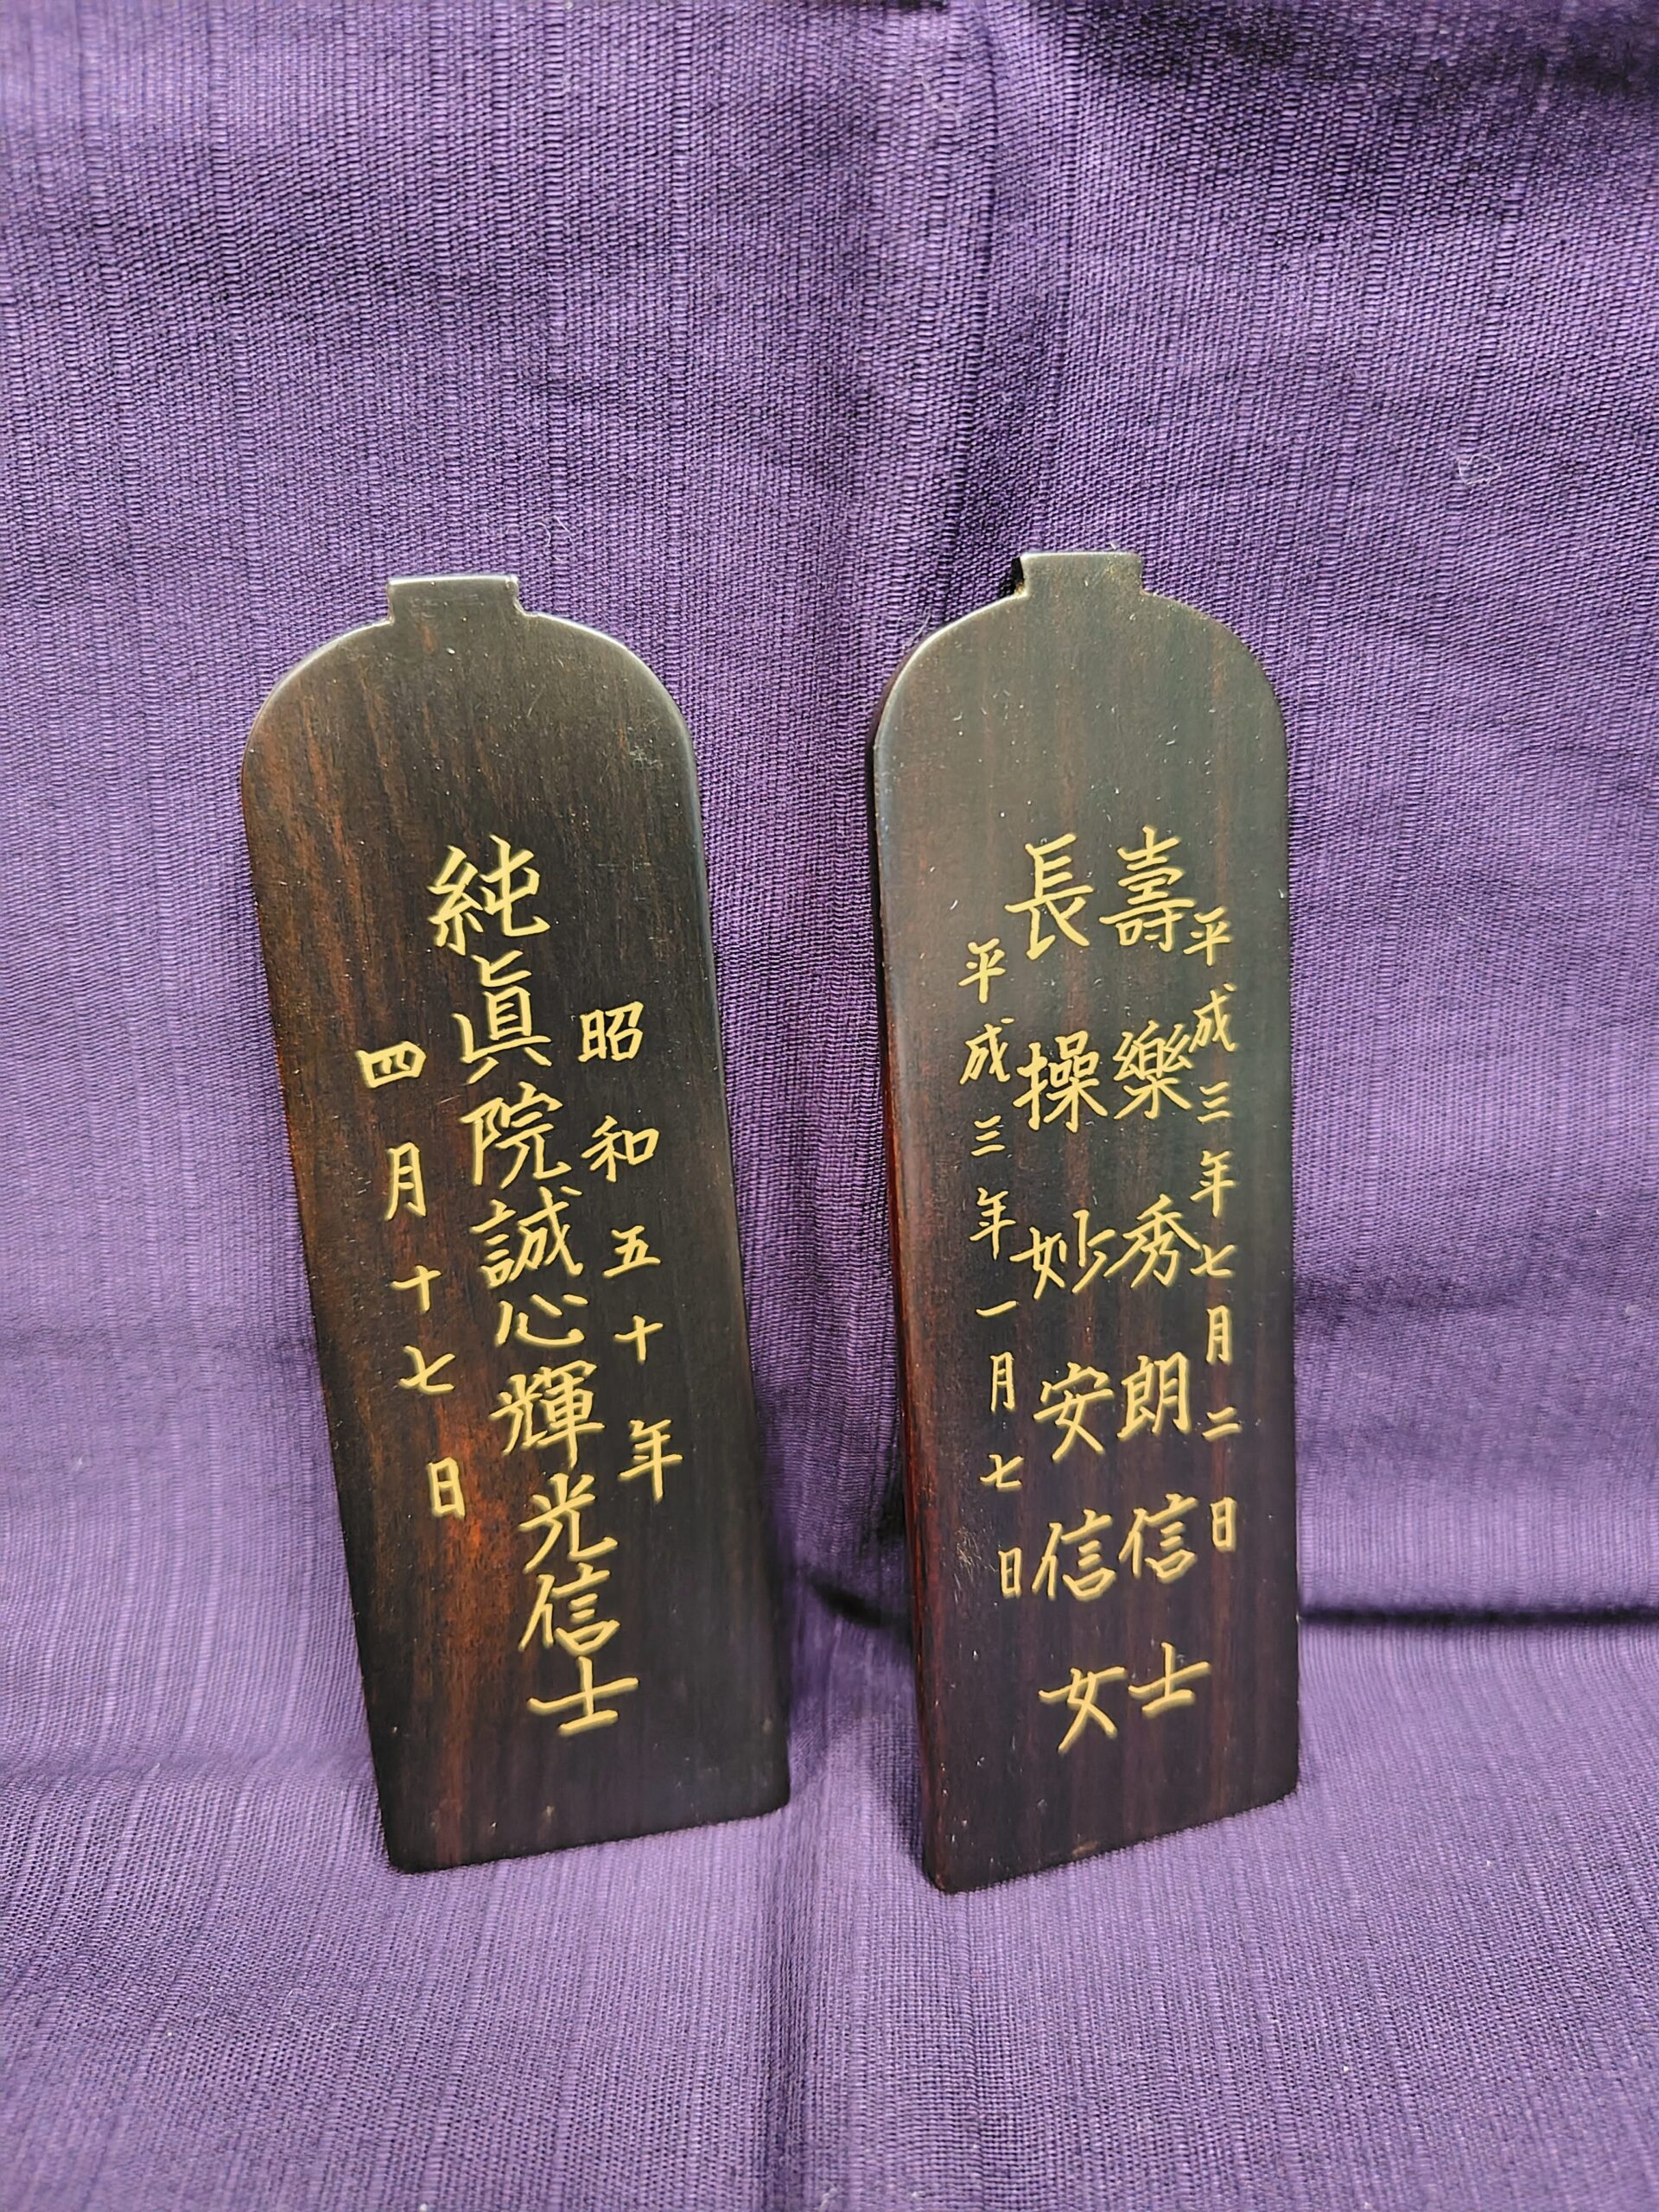 昭和五十年
純眞院誠心輝光信士
四月十七日
平成三年七月二日
壽樂秀朗信士
長操妙安信女
平成三年一月七日